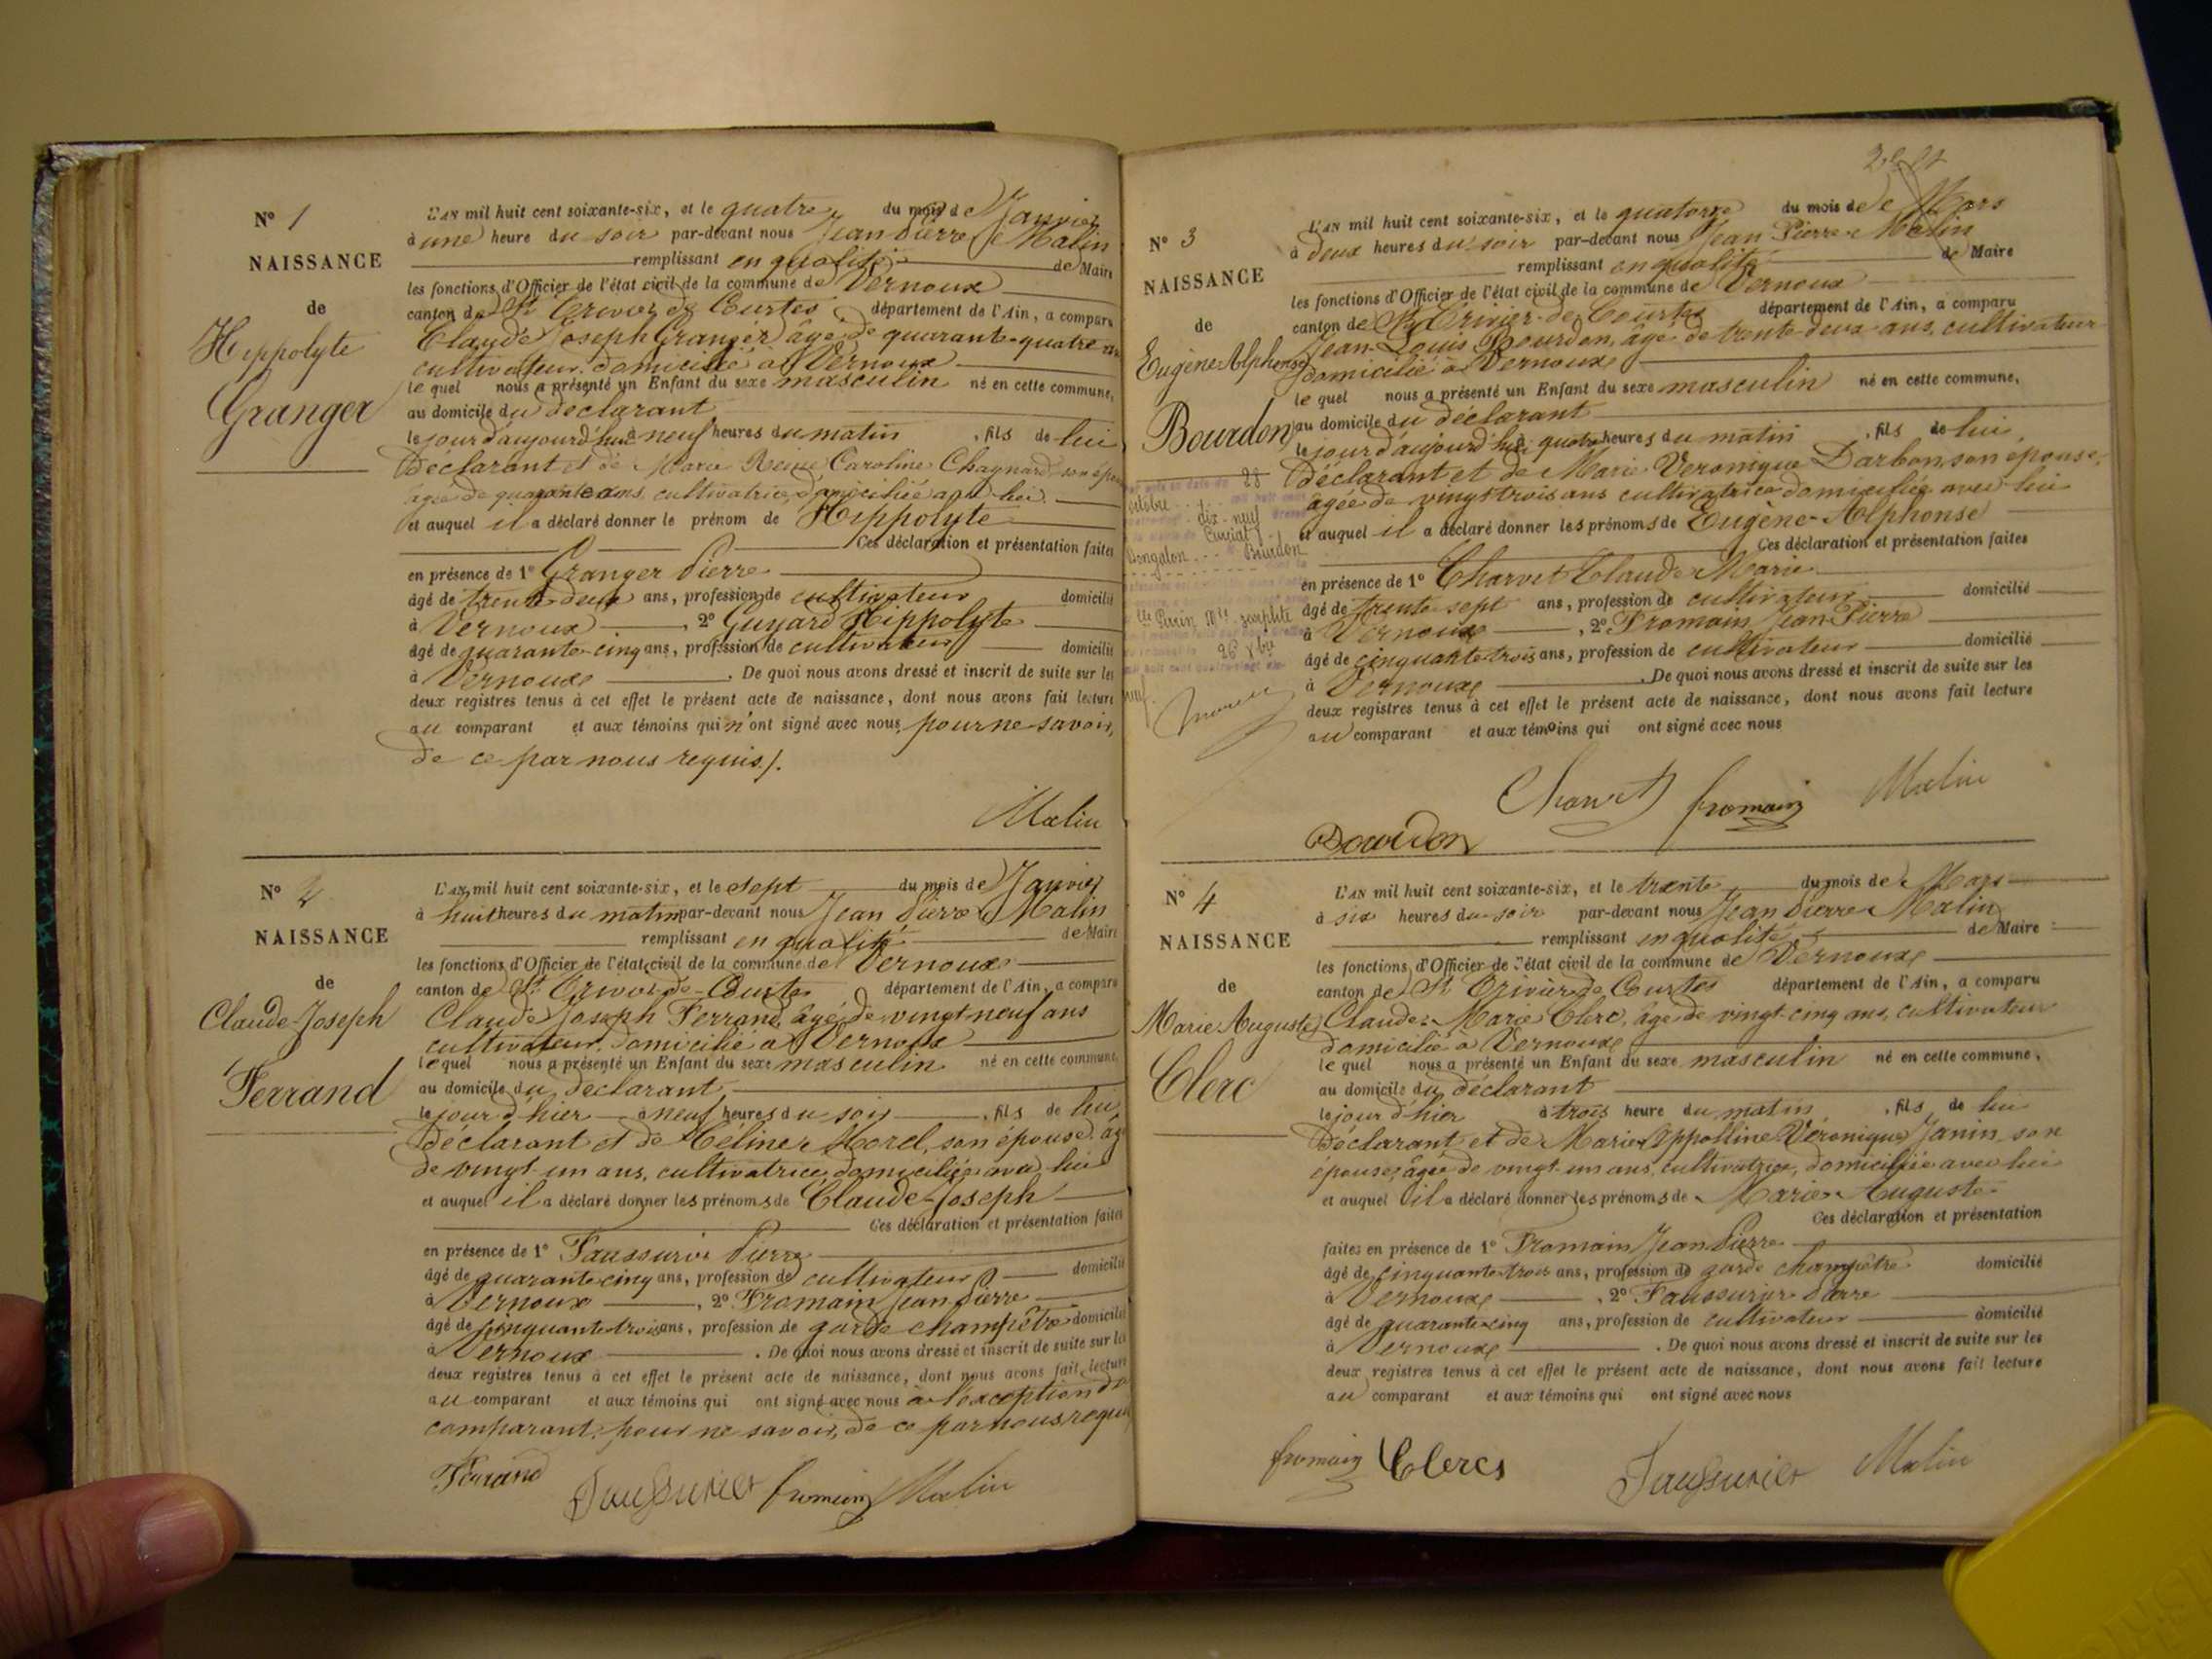 N° 1
NAISSANCE
de
Hippolyte
Granger
L'AN mil huit cent soixante-six, et le quatre du mois de Janvier
à une heure du soir par-devant nous Jean Pierre Malin
remplissant en qualité de Maire
les fonctions d'Officier de l'état civil de la commune de Vernoux
canton de St Trivier de Courtes département de l'Ain, a comparu
Claude Joseph Granger âgé de quarante-quatre ans
cultivateur domicilié à Vernoux
lequel nous a présenté un Enfant du sexe masculin né en cette commune,
au domicile du déclarant
le jour d'aujourd'hui à neuf heures du matin, fils de lui
déclarant et de Marie Reine Caroline Chagnard son épouse
âgée de quarante ans, cultivatrice, domiciliée avec lui
et auquel il a déclaré donner le prénom de Hippolyte
Ces déclaration et présentation faites
en présence de 1° Granger Pierre
âgé de trente deux ans, profession de cultivateur domicilié
à Vernoux, 2° Guyard Hippolyte
âgé de quarante-cinq ans, profession de cultivateur domicilié
à Vernoux. De quoi nous avons dressé et inscrit de suite sur les
deux registres tenus à cet effet le présent acte de naissance, dont nous avons fait lecture
au comparant et aux témoins qui n'ont signé avec nous pour ne savoir,
de ce par nous requis./.
Malin
N° 2
NAISSANCE
de
Claude-Joseph
Ferrand
L'AN mil huit cent soixante-six, et le sept du mois de Janvier
à huit heures du matin par-devant nous Jean Pierre Malin
remplissant en qualité de Maire
les fonctions d'Officier de l'état civil de la commune de Vernoux
canton de St Trivier de Courtes département de l'Ain, a comparu
Claude Joseph Ferrand, âgé de vingt neuf ans
cultivateur, domicilié à Vernoux
lequel nous a présenté un Enfant du sexe masculin né en cette commune,
au domicile du déclarant
le jour d'hier à neuf heures du soir, fils de lui
déclarant et de Céline Morel, son épouse âgée
de vingt-un ans, cultivatrice, domiciliée avec lui
et auquel il a déclaré donner les prénoms de Claude-Joseph
Ces déclaration et présentation faites
en présence de 1° Faussurier Pierre
âgé de quarante cinq ans, profession de cultivateur domicilié
à Vernoux, 2° Fromain Jean-Pierre
âgé de cinquante-trois ans, profession de garde champêtre domicilié
à Vernoux. De quoi nous avons dressé et inscrit de suite sur les
deux registres tenus à cet effet le présent acte de naissance, dont nous avons fait lecture
au comparant et aux témoins qui ont signé avec nous à l'exception du
comparant, pour ne savoir, de ce par nous requis
Ferrand Faussurier fromain Malin
N° 3
NAISSANCE
de
Eugène Alphonse
Bourdon
28
octobre
dix-neuf
Curciat
Dongalon Bourdon
26 8bre
L'AN mil huit cent soixante-six, et le quatorze du mois de Mars
à deux heures du soir par-devant nous Jean Pierre Malin
remplissant en qualité de Maire
les fonctions d'Officier de l'état civil de la commune de Vernoux
canton de St Trivier-de-Courtes département de l'Ain, a comparu
Jean-Louis Bourdon, âgé de trente deux ans, cultivateur
domicilié à Vernoux
lequel nous a présenté un Enfant du sexe masculin né en cette commune,
au domicile du déclarant
le jour d'aujourd'hui à quatre heures du matin, fils de lui,
déclarant et de Marie Veronique Darbon, son épouse,
âgée de vingt trois ans cultivatrice domiciliée avec lui
et auquel il a déclaré donner les prénoms de Eugène-Alphonse
Ces déclaration et présentation faites
en présence de 1° Charvet Claude Marie
âgé de trente-sept ans, profession de cultivateur domicilié
à Vernoux, 2° Fromain Jean-Pierre
âgé de cinquante-trois ans, profession de cultivateur domicilié
à Vernoux. De quoi nous avons dressé et inscrit de suite sur les
deux registres tenus à cet effet le présent acte de naissance, dont nous avons fait lecture
au comparant et aux témoins qui ont signé avec nous
Charvet fromain Malin
Bourdon
N° 4
NAISSANCE
de
Marie Auguste
Clerc
L'AN mil huit cent soixante-six, et le trente du mois de Mars
à six heures du soir par-devant nous Jean Pierre Malin
remplissant en qualité de Maire
les fonctions d'Officier de l'état civil de la commune de Vernoux
canton de St Trivier de Courtes département de l'Ain, a comparu
Claude-Marie Clerc, âgé de vingt-cinq ans, cultivateur
domicilié à Vernoux
lequel nous a présenté un Enfant du sexe masculin né en cette commune,
au domicile du déclarant
le jour d'hier à trois heure du matin, fils de lui
déclarant et de Marie Appolline Véronique Janin son
épouse, âgée de vingt-un ans, cultivatrice, domiciliée avec lui
et auquel il a déclaré donner les prénoms de Marie Auguste
Ces déclaration et présentation
faites en présence de 1° Fromain Jean Pierre
âgé de cinquante-trois ans, profession de garde champêtre domicilié
à Vernoux, 2° Faussurier Pierre
âgé de quarante-cinq ans, profession de cultivateur domicilié
à Vernoux. De quoi nous avons dressé et inscrit de suite sur les
deux registres tenus à cet effet le présent acte de naissance, dont nous avons fait lecture
au comparant et aux témoins qui ont signé avec nous
fromain Clercs Faussurier Malin